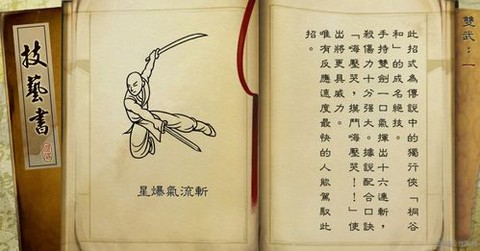 雙武：一
此招式為傳說中的獨行俠「桐谷
和」的成名絕技。
手持雙劍一口氣揮出十六連斬，
殺傷力十分強大。據說配合口訣
「嗨壓哭，摸鬥嗨壓哭！！」使
出將更具威力。
唯有反應速度最快的人能駕馭此
招。
星爆氣流斬
技藝書